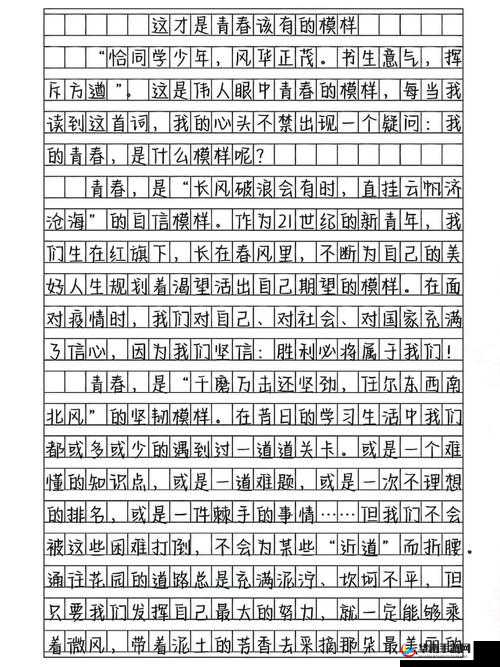 这才是青春该有的模样
“恰同学少年，风华正茂。书生意气，挥
斥方遒”。这是伟人眼中青春的模样，每当我
读到这首词，我的心头不禁出现一个疑问：我
的青春，是什么模样呢？
青春，是“长风破浪会有时，直挂云帆济
沧海”的自信模样。作为21世纪的新青年，我
们生在红旗下，长在春风里，不断为自己的美
好人生规划着渴望活出自己期望的模样。在面
对疫情时，我们对自己、对社会、对国家充满
了信心，因为我们坚信：胜利必将属于我们！
青春，是“千磨万击还坚劲，任尔东西南
北风”的坚韧模样。在昔日的学习生活中我们
都或多或少的遇到过一道道关卡。或是一个难
懂的知识点，或是一道难题，或是一次不理想
的排名，或是一件棘手的事情……但我们不会
被这些困难打倒，不会为某些“近道”而折腰。
通往花园的道路总是充满泥泞、坎坷不平，但
只要我们发挥自己最大的努力，就一定能够乘
着微风，带着泥土的芳香去采摘那朵最美丽的